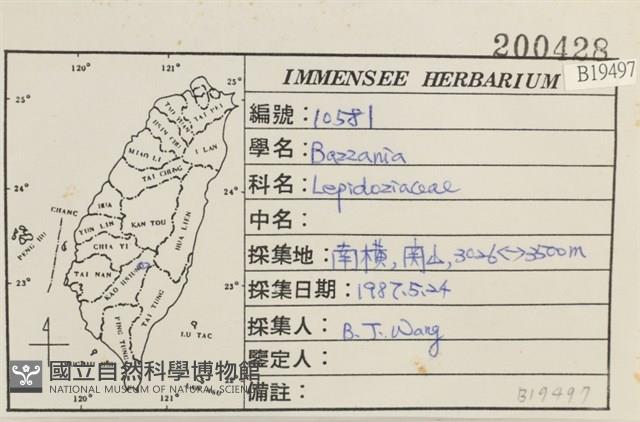 200428
B19497
IMMENSEE HERBARIUM
編號：10581
學名：Bazzania
科名：Lepidoziaceae
中名：
採集地：南橫,関山,3026<->3500m
採集日期：1987.5.24
採集人：B.J.Wang
鑒定人：
備註：
B19497
120°
121°
25°
25°
24°
24°
23°
23°
120°
121°
TAI PEI
I LAN
MIAO LI
TAI CHUNG
CHANG
HUA
YUN LIN
KAN TOU
HUA LIEN
CHIA YI
PENG HU
TAI NAN
KAO HSIUNG
TAI TUNG
PING TUNG
LU TAO
國立自然科學博物館
NATIONAL MUSEUM OF NATURAL SCIENCE